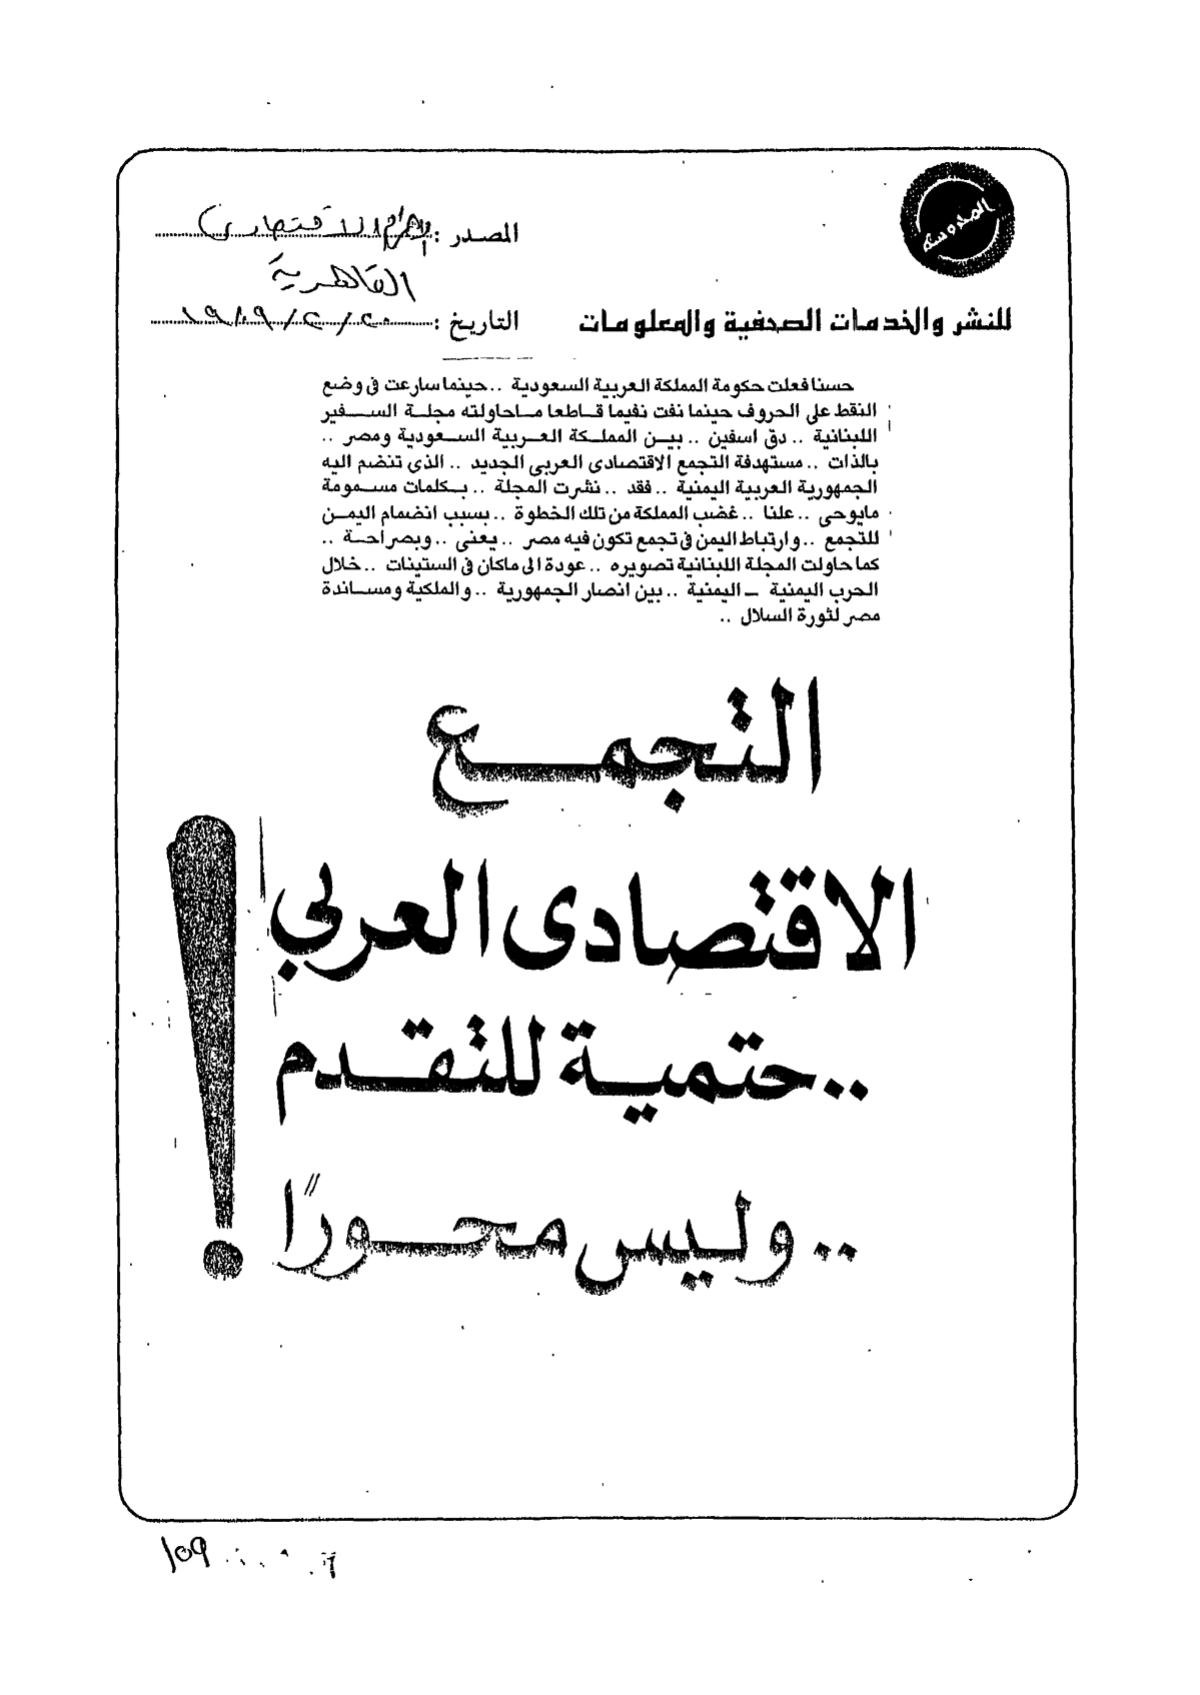 المصدر : الأهرام الاقتصادى
القاهرية
للنشر والخدمات الصحفية والمعلومات
التاريخ : ٢٠/٢/١٩٨٩
حسنا فعلت حكومة المملكة العربية السعودية .. حينما سارعت فى وضع
النقط على الحروف حينما نفت نفيما قاطعا ماحاولته مجلة السفير
اللبنانية .. دق اسفين .. بين المملكة العربية السعودية ومصر ..
بالذات .. مستهدفة التجمع الاقتصادى العربى الجديد .. الذى تنضم اليه
الجمهورية العربية اليمنية .. فقد .. نشرت المجلة .. بكلمات مسمومة
مايوحى .. علنا .. غضب المملكة من تلك الخطوة .. بسبب انضمام اليمن
للتجمع .. وارتباط اليمن فى تجمع تكون فيه مصر .. يعنى .. وبصراحة ..
كما حاولت المجلة اللبنانية تصويره .. عودة الى ماكان فى الستينات .. خلال
الحرب اليمنية ــ اليمنية .. بين انصار الجمهورية .. والملكية ومساندة
مصر لثورة السلال ..
التجمع
الاقتصادى العربى
.. حتمية للتقدم
.. وليس محورًا !
١٥٩